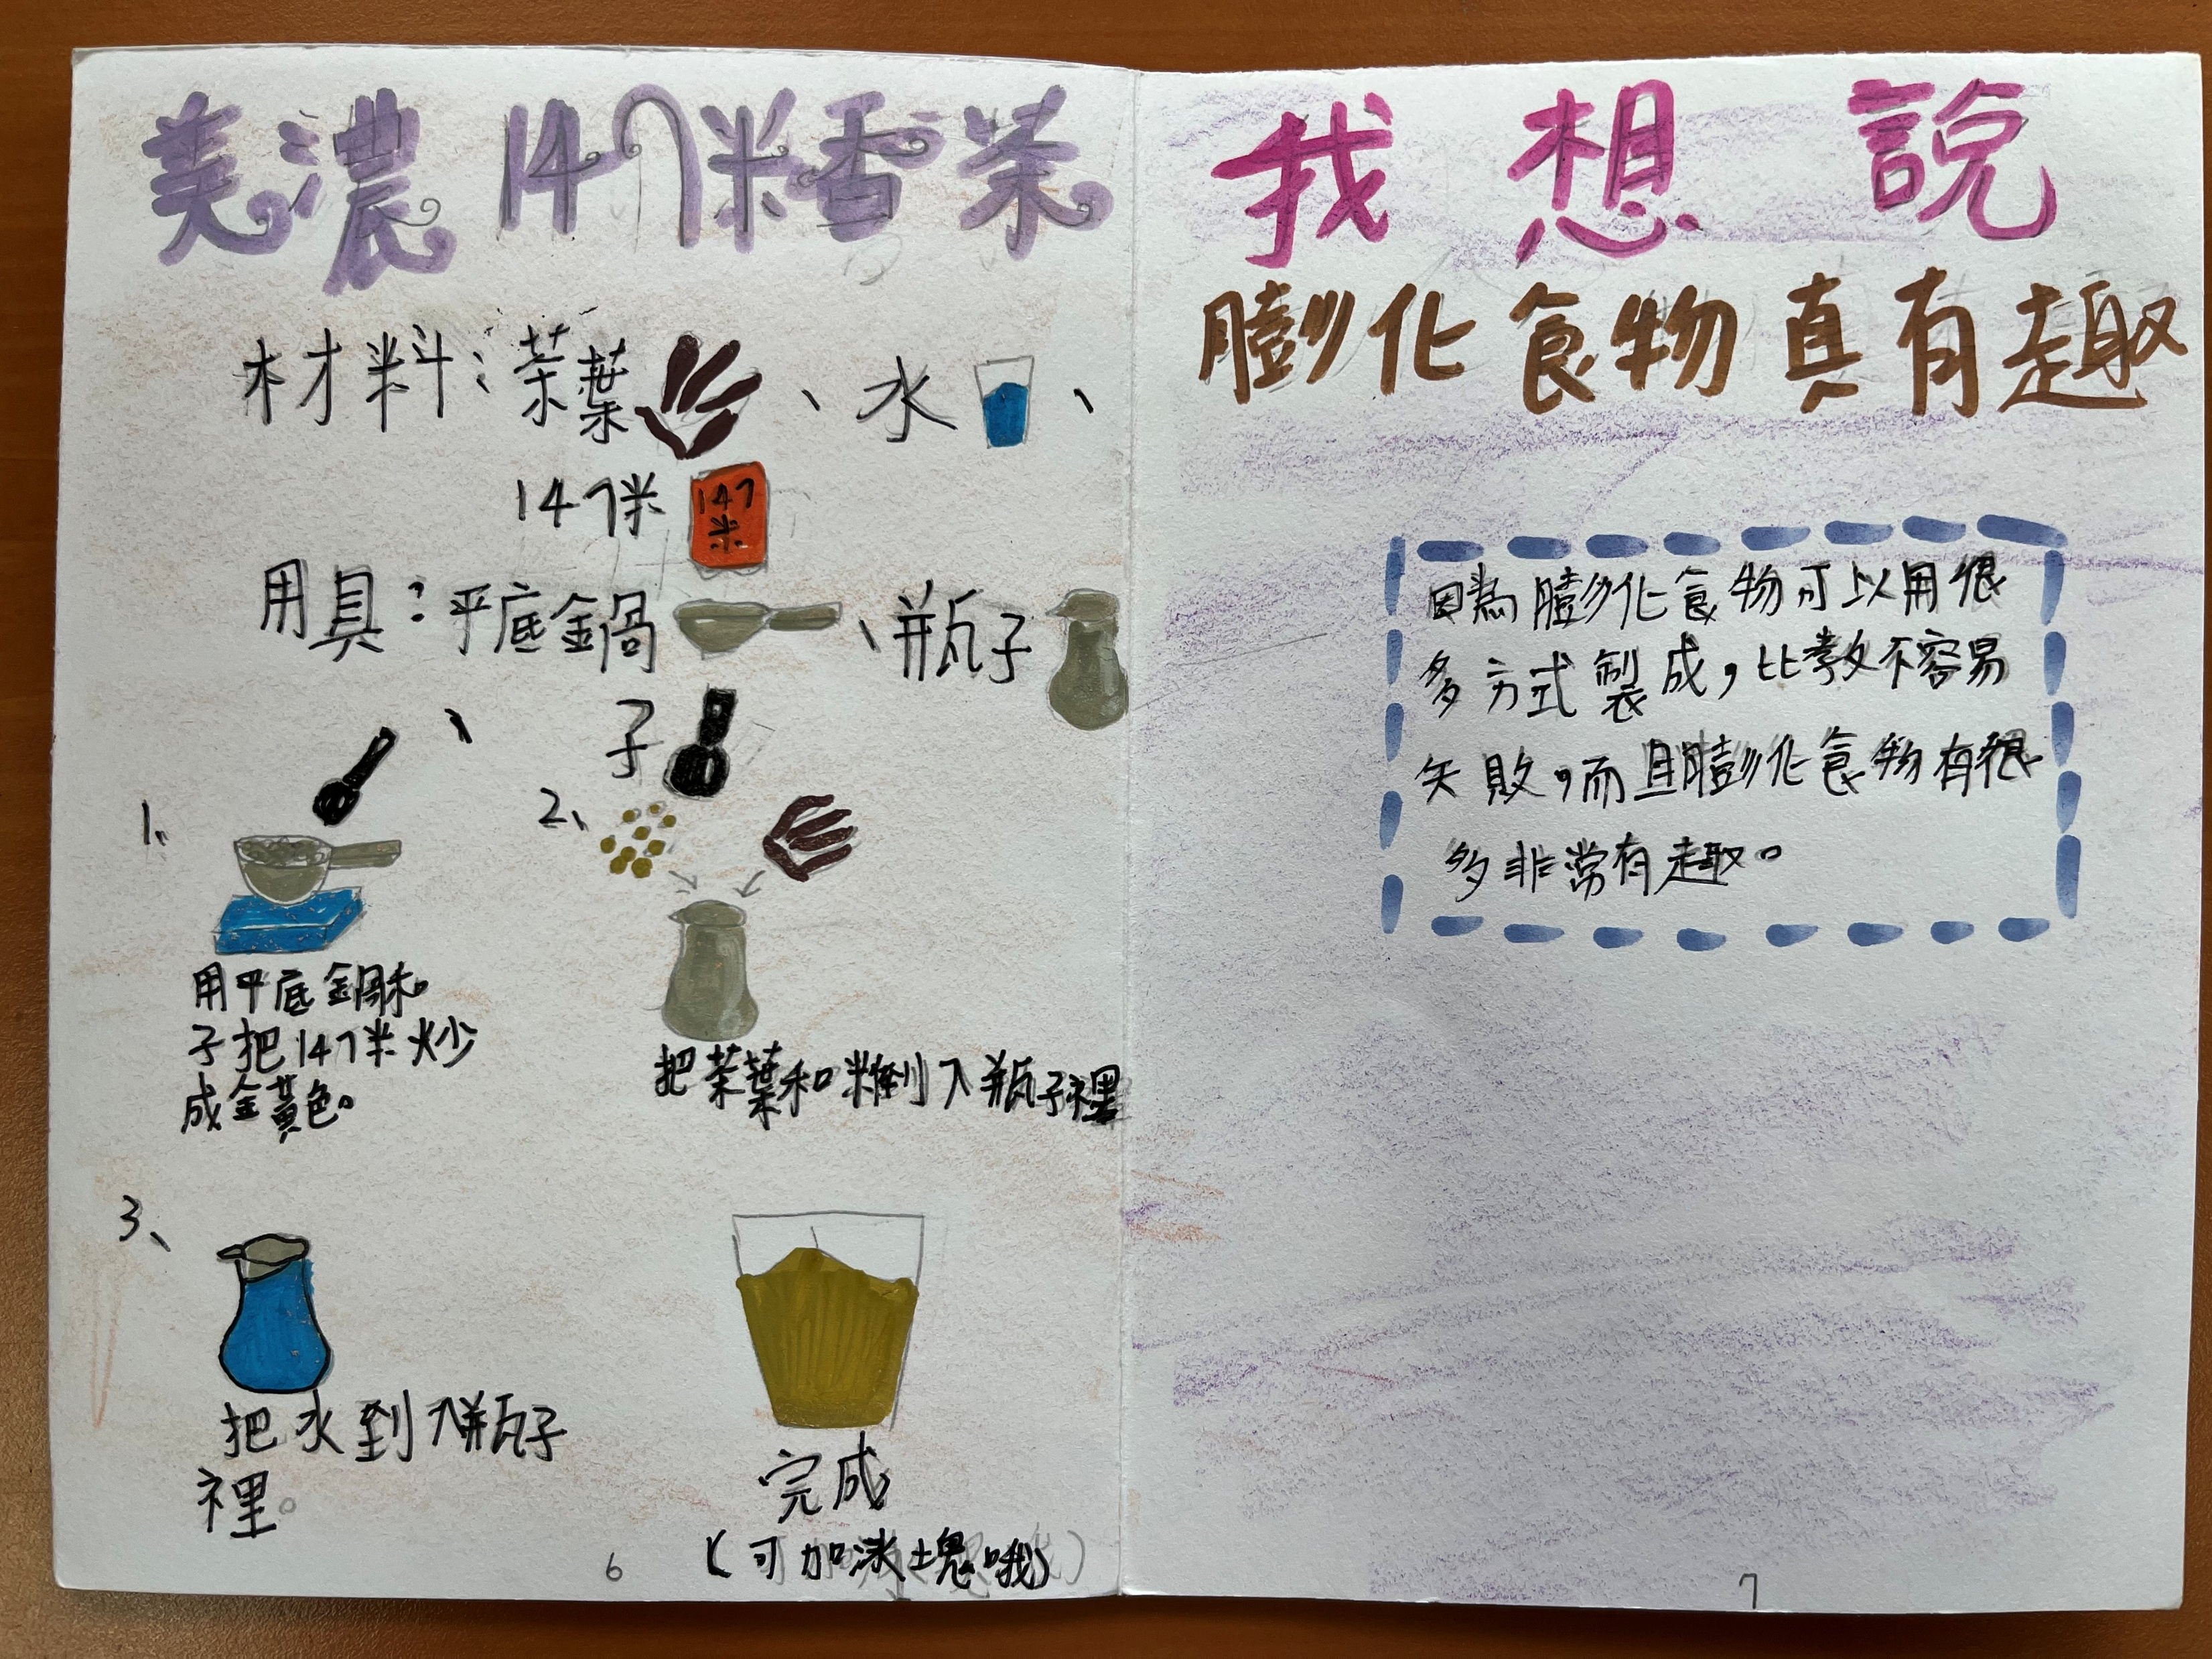 美濃147米香茶
材料:茶葉、水、
147米
147
米
用具:平底鍋、瓶子
、子
1、
2、
用平底鍋和
子把147米炒
成金黃色。
把茶葉和米倒入瓶子裡
3、
把水到入瓶子
裡。
完成
(可加冰塊哦)
6
我想說
膨化食物真有趣
因為膨化食物可以用很
多方式製成,比較不容易
失敗,而且膨化食物有很
多非常有趣。
7